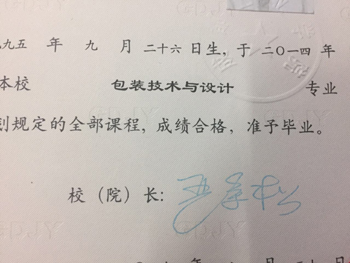 九五 年 九 月 二十六日生，于 二〇一四 年
本校 包装技术与设计 专业
划规定的全部课程，成绩合格，准予毕业。
校（院）长：